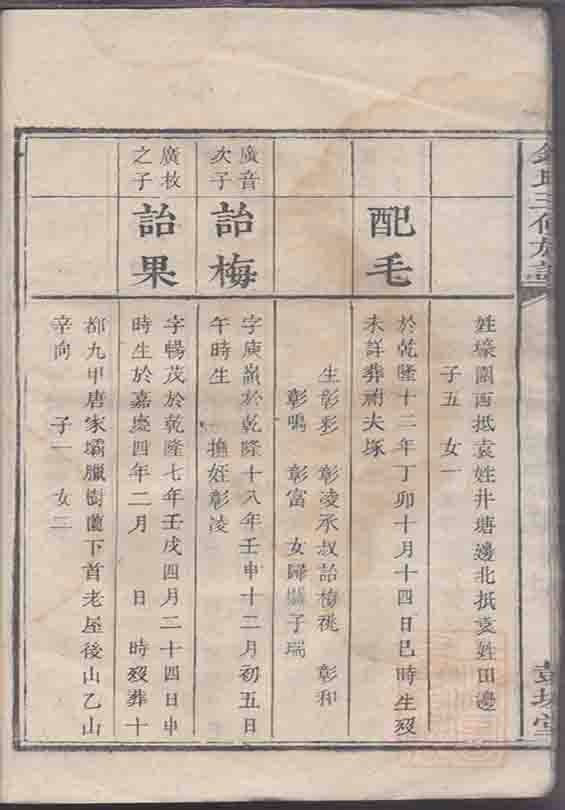 三修族譜
彭城堂
姓壕圍西抵袁姓井塘邊北抵袁姓田邊
子五 女一
配毛
於乾隆十二年丁卯十月十四日巳時生歿
未詳葬祔夫塚
生彰彩 彰凌承叔詒梅祧 彰和
彰鳴 彰富 女歸子瑞
廣音
次子
詒梅
字庾嶺於乾隆十八年壬申十二月初五日
午時生 撫姪彰凌
廣牧
之子
詒果
字暢茂於乾隆七年壬戌四月二十四日申
時生於嘉慶四年二月 日 時歿葬十
都九甲唐家壩臘樹薗下首老屋後山乙山
辛向 子一 女二